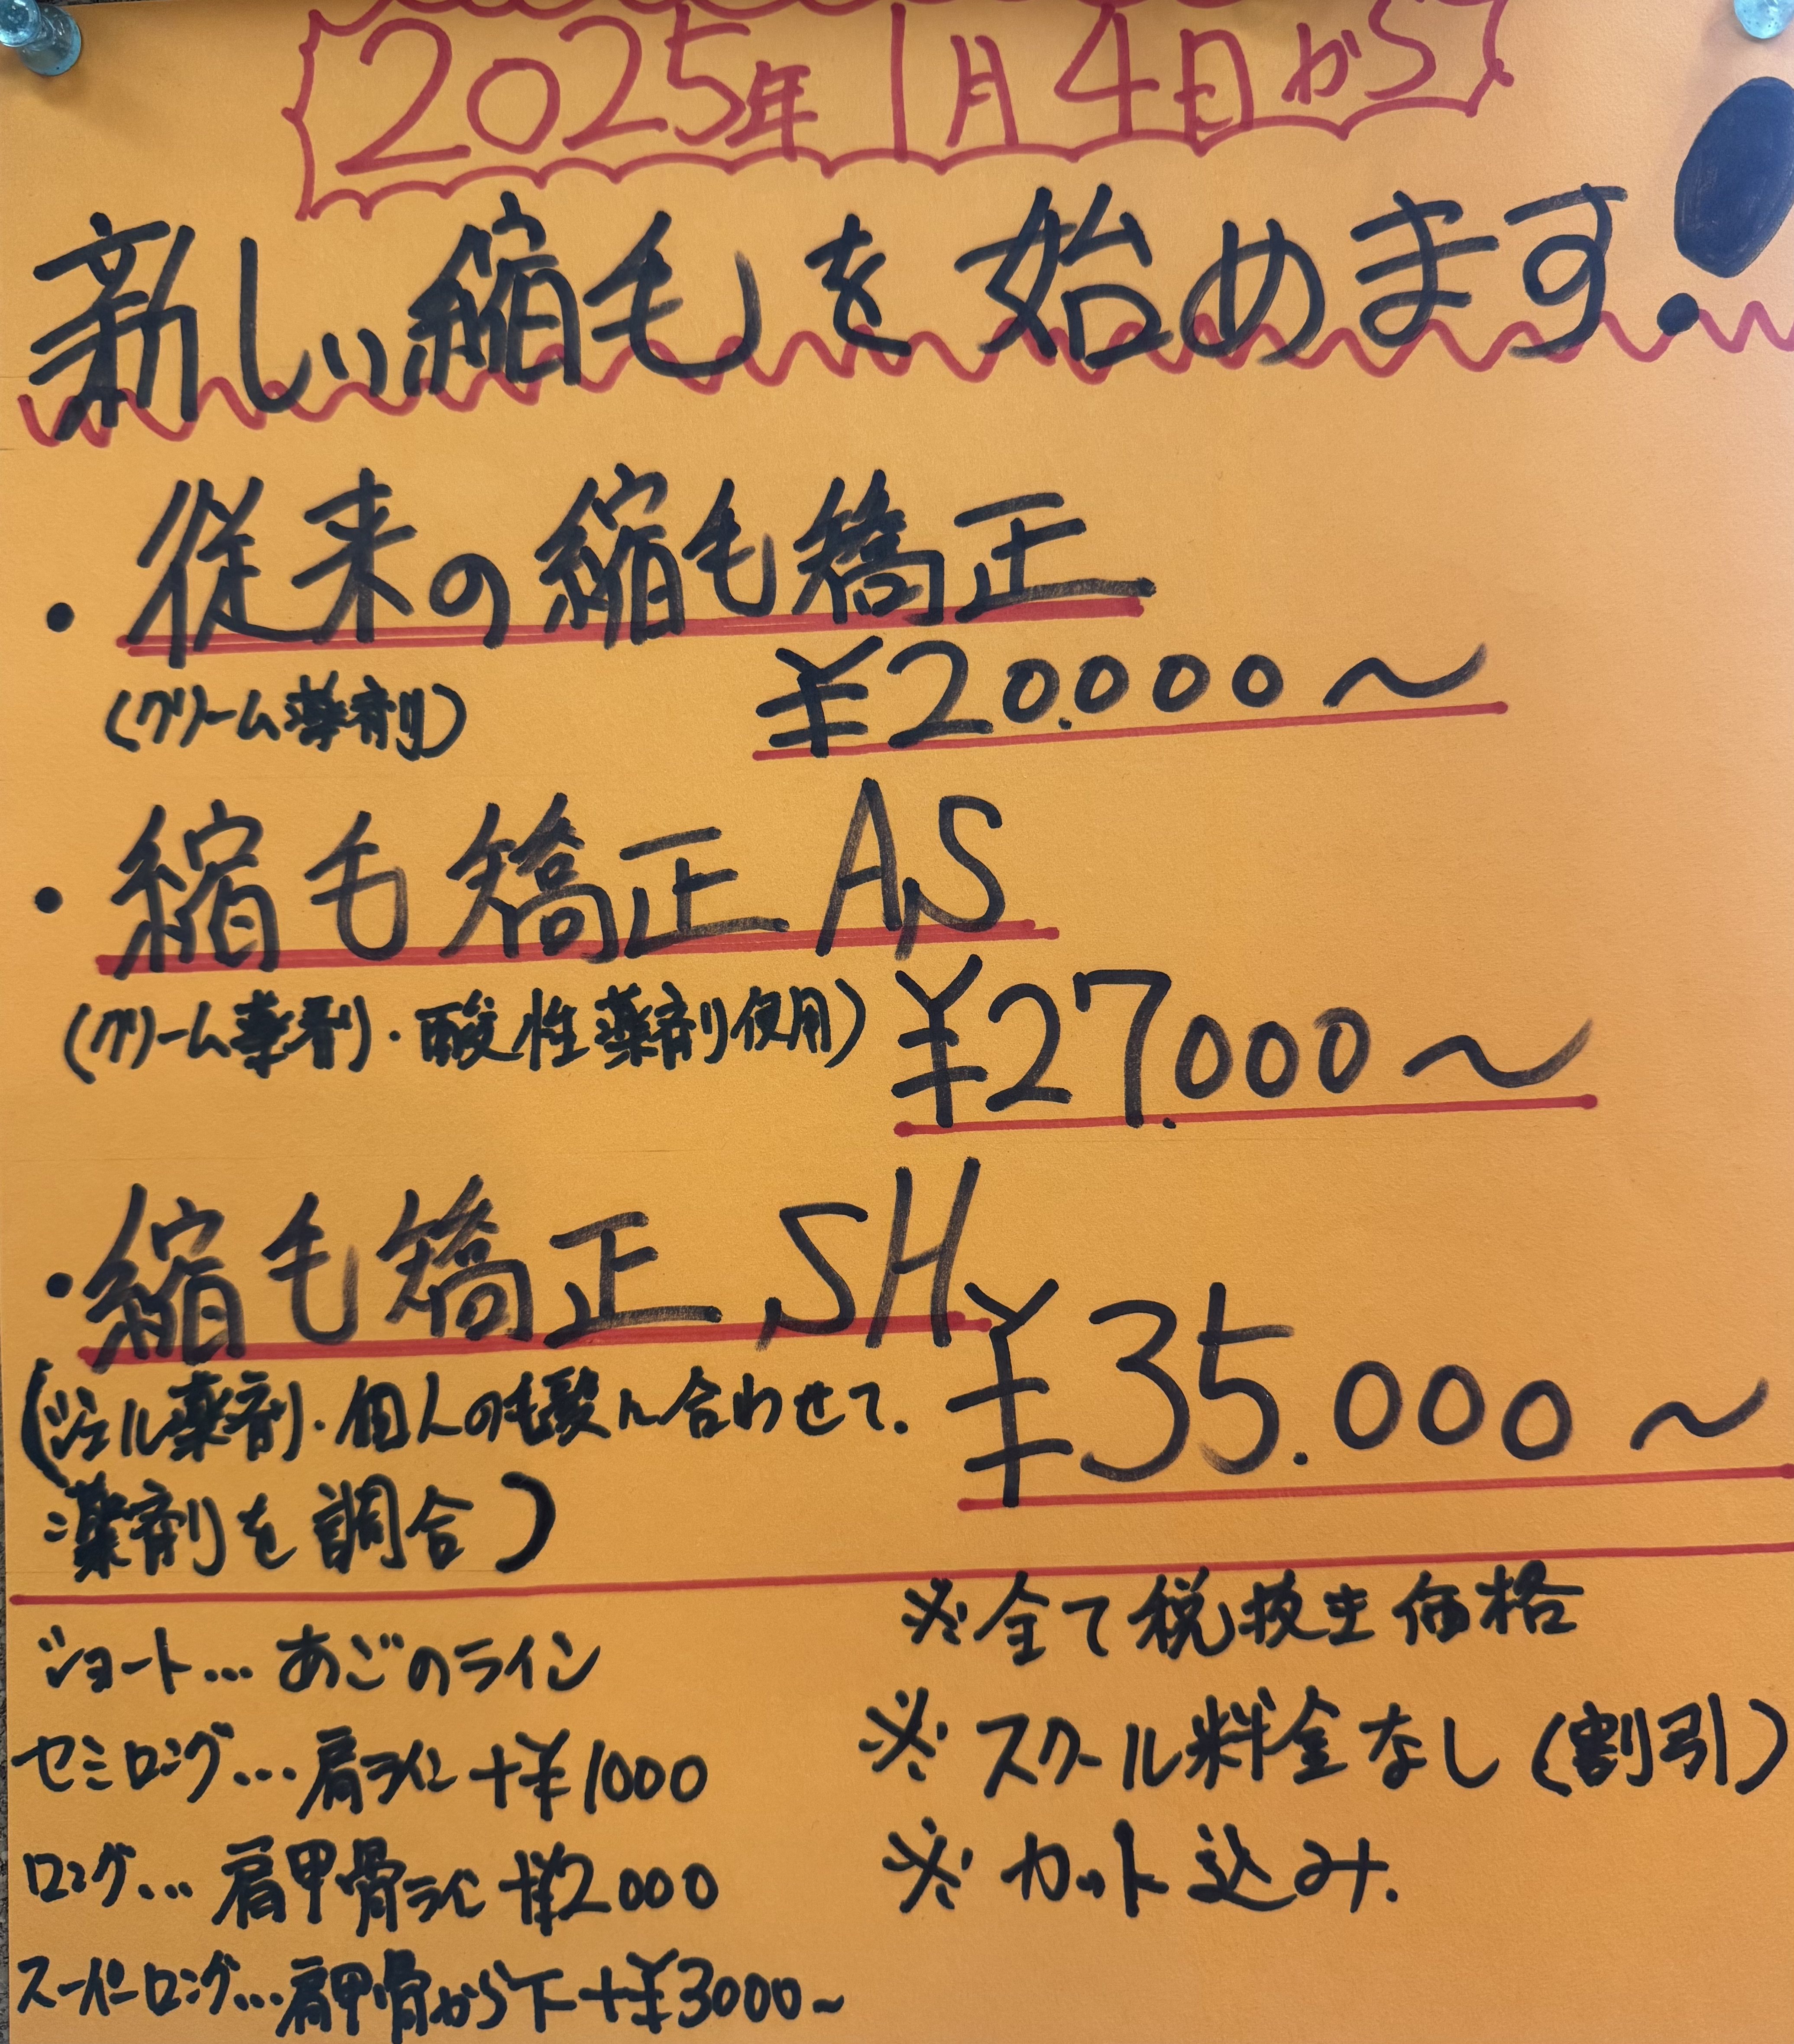 2025年1月4日から
新しい縮毛を始めます!
・従来の縮毛矯正
(クリーム薬剤)
¥20.000〜
・縮毛矯正 AS
(クリーム薬剤・酸性薬剤使用)
¥27.000〜
・縮毛矯正 SH
(ジェル薬剤・個人の毛髪に合わせて.
薬剤を調合)
¥35.000〜
ショート…あごのライン
セミロング…肩ライン+¥1000
ロング…肩甲骨ライン+¥2000
スーパーロング…肩甲骨から下+¥3000〜
※全て税抜き価格
※スクール料金なし(割引)
※カット込み.